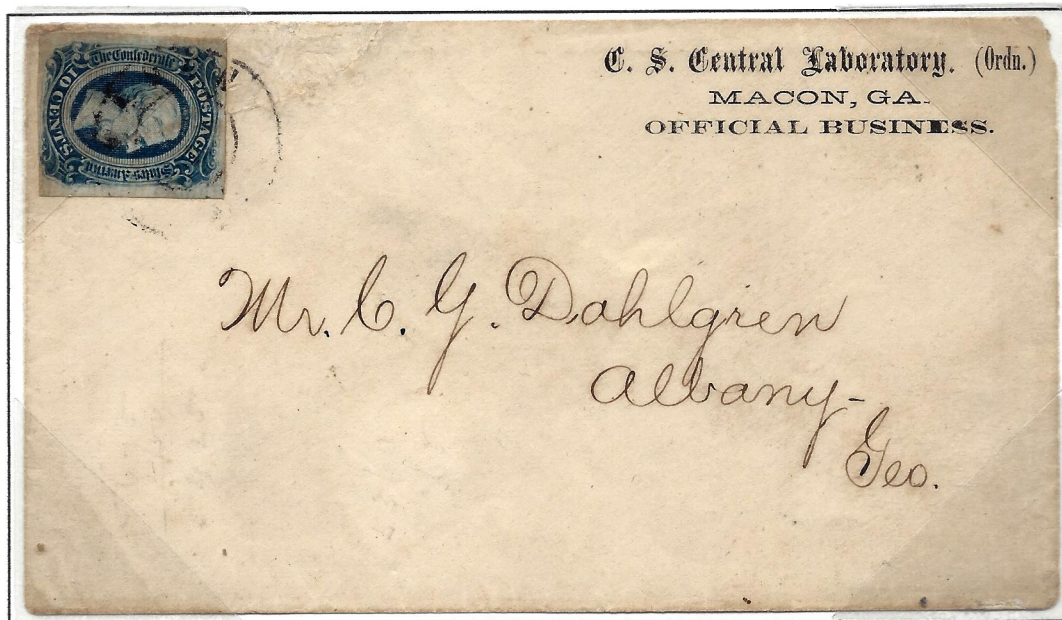 The Confederate
POSTAGE
States America
10 CENTS
C. S. Central Laboratory. (Ordn.)
MACON, GA.
OFFICIAL BUSINESS.
Mr. C. G. Dahlgren
Albany-
Geo.